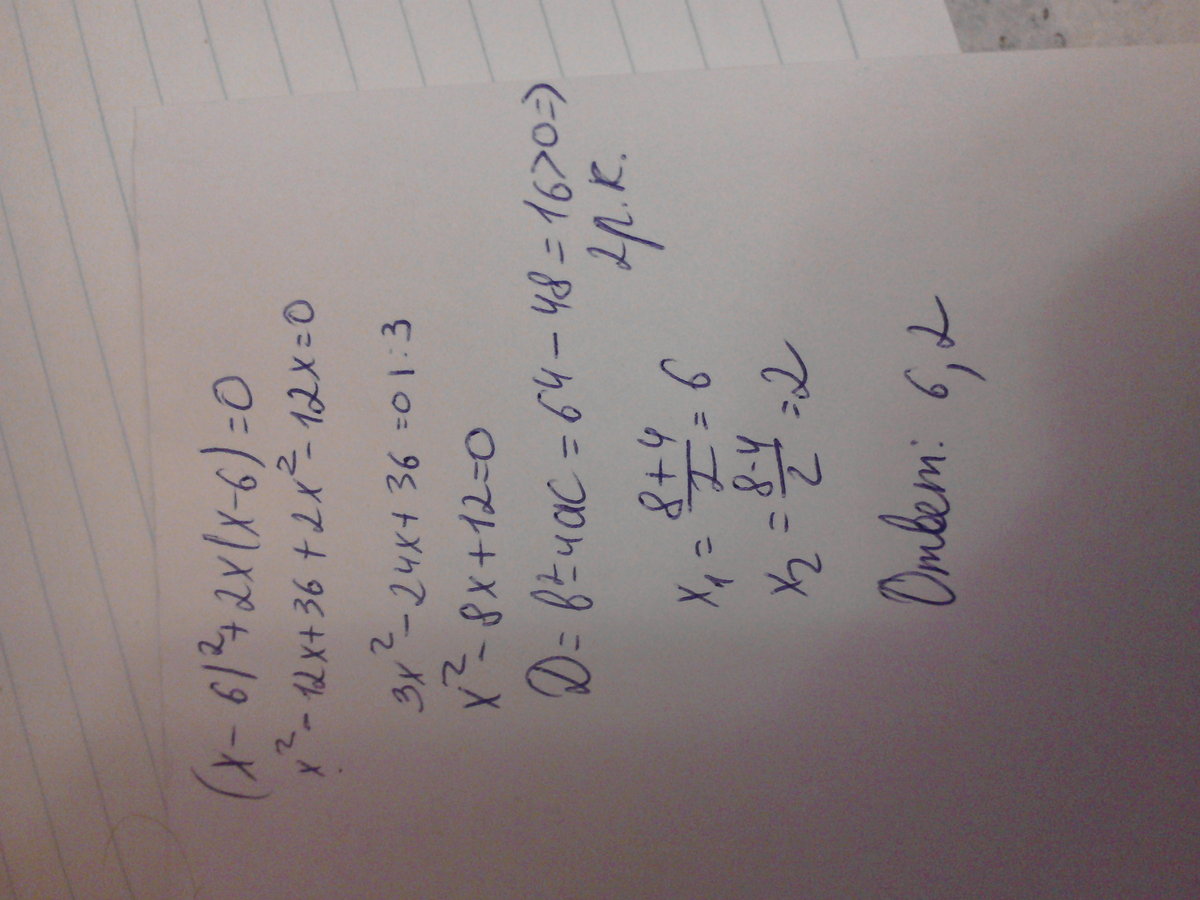 (x-6)²+2x(x-6)=0
x²-12x+36+2x²-12x=0
3x²-24x+36=0 |:3
x²-8x+12=0
D=b²-4ac=64-48=16>0=>
2 р.к.
x₁=(8+4)/2=6
x₂=(8-4)/2=2
Ответ: 6,2